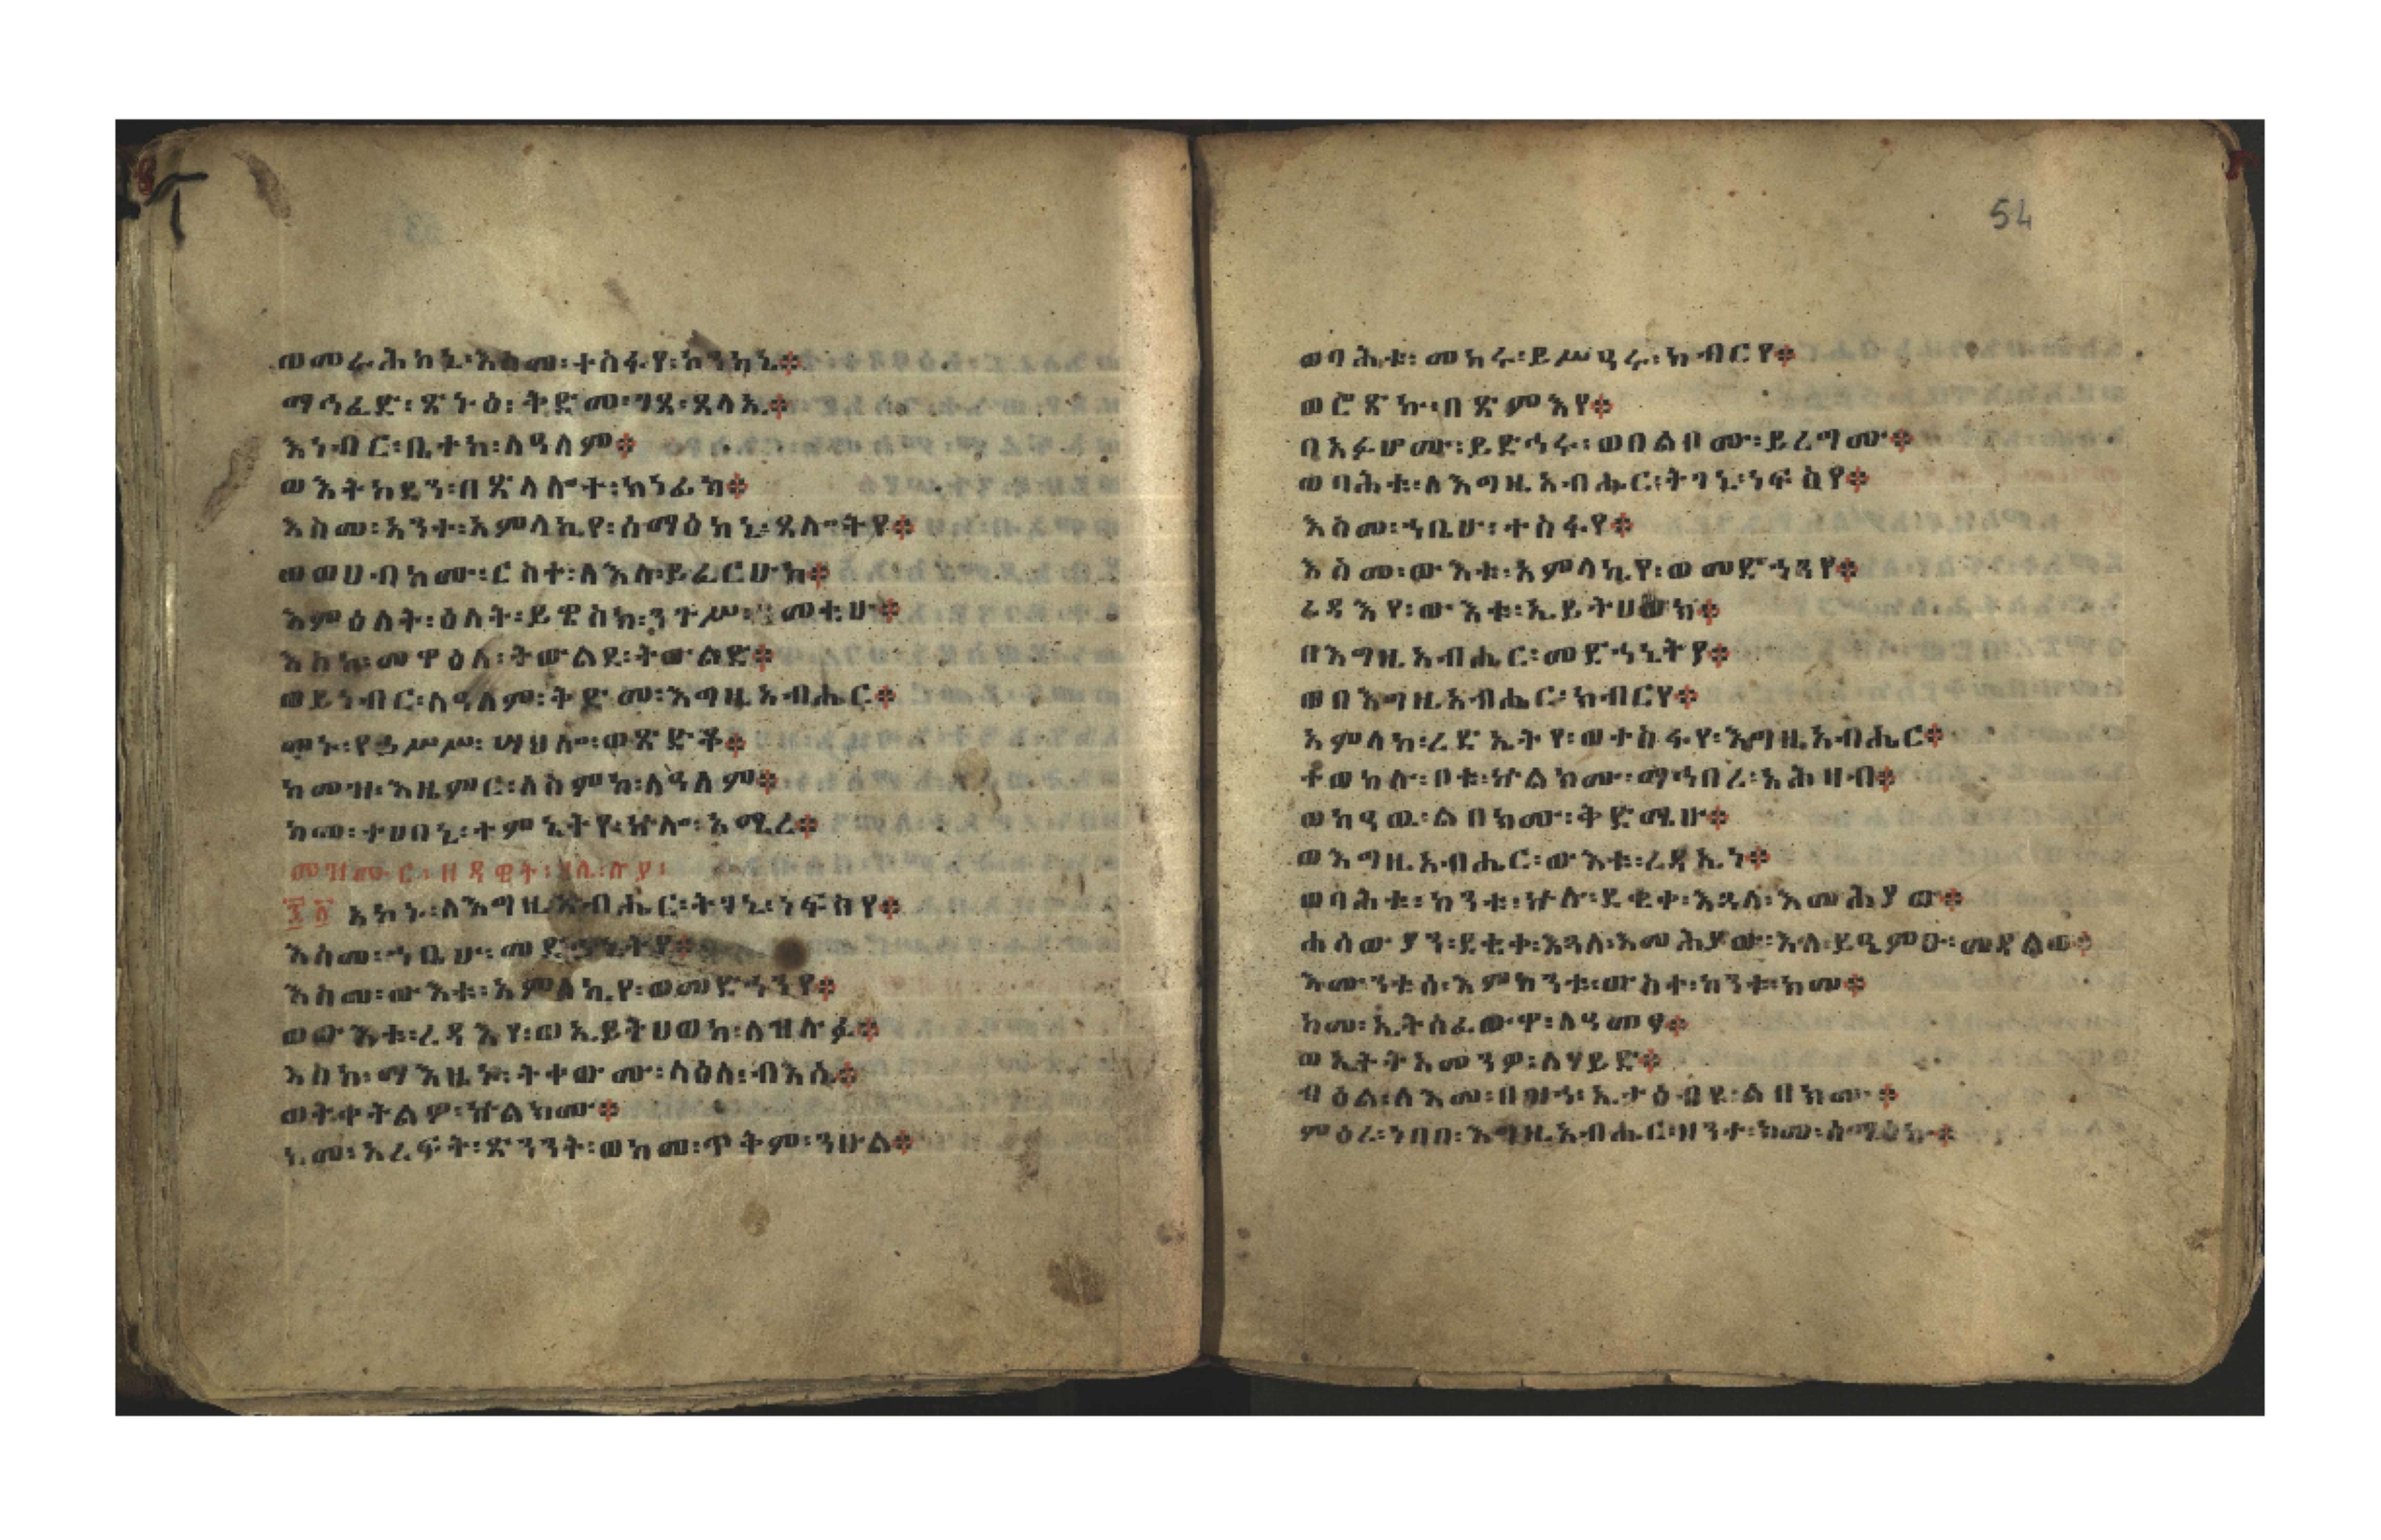 ወመራሕከኒ፡እስመ፡ተስፋየ፡ኮንከኒ።
ማኅፈድ፡ጽኑዕ፡ቅድመ፡ገጸ፡ጸላኢ።
እነብር፡ቤተከ፡ለዓለም።
ወእትከደን፡በጽላሎተ፡ክነፊከ።
እስመ፡አንተ፡አምላኪየ፡ሰማዕከኒ፡ጸሎትየ።
ወወሀብኮሙ፡ርስተ፡ለእለ፡ይፈርሁከ።
እምዕለት፡ዕለት፡ይዌስክ፡ንጉሥ፡ዓመቲሁ።
እስከ፡መዋዕለ፡ትውልደ፡ትውልድ።
ወይነብር፡ለዓለም፡ቅድመ፡እግዚአብሔር።
መኑ፡የኃሥሥ፡ሣህሎ፡ወጽድቆ።
ከመዝ፡እዜምር፡ለስምከ፡ለዓለም።
ከመ፡ተሀበኒ፡ተምኔትየ፡ኵሎ፡አሚረ።
መዝሙር፡ዘዳዊት፡ሃሌ፡ሉያ፡
፷፩ አኮኑ፡ለእግዚአብሔር፡ትገኒ፡ነፍስየ።
እስመ፡ኀቤሁ፡መድኀኒትየ።
እስመ፡ውእቱ፡አምላኪየ፡ወመድኀንየ።
ወውእቱ፡ረዳእየ፡ወኢይትሀወክ፡ለዝሉፉ።
እስከ፡ማእዜኑ፡ትቀውሙ፡ላዕለ፡ብእሲ።
ወትቀትልዎ፡ኵልክሙ።
ከመ፡አረፍት፡ጽንንት፡ወከመ፡ጥቅም፡ንሁል።
54
ወባሕቱ፡መከሩ፡ይሥዓሩ፡ክብርየ።
ወሮጽኩ፡በጽምእየ።
በአፉሆሙ፡ይድኅሩ፡ወበልቦሙ፡ይረግሙ።
ወባሕቱ፡ለእግዚአብሔር፡ትገኒ፡ነፍስየ።
እስመ፡ኀቤሁ፡ተስፋየ።
እስመ፡ውእቱ፡አምላኪየ፡ወመድኀንየ።
ረዳእየ፡ውእቱ፡ኢይትሀወክ።
በእግዚአብሔር፡መድኀኒትየ።
ወበእግዚአብሔር፡ክብርየ።
አምላከ፡ረድኤትየ፡ወተስፋየ፡እግዚአብሔር።
ተወከሉ፡ቦቱ፡ኵልክሙ፡ማኅበረ፡አሕዛብ።
ወከዓዉ፡ልበክሙ፡ቅድሜሁ።
ወእግዚአብሔር፡ውእቱ፡ረዳኢነ።
ወባሕቱ፡ከንቱ፡ኵሉ፡ደቂቀ፡እጓለ፡እመሕያው።
ሐሳውያን፡ደቂቀ፡እጓለ፡እመሕያው፡እለ፡ይዔምፁ፡መዳልወ።
እሙንቱሰ፡እምከንቱ፡ውስተ፡ከንቱ፡ከመ።
ከመ፡ኢትሰፈውዋ፡ለዓመፃ።
ወኢትትአመንዎ፡ለሃይድ።
ብዕል፡ለእመ፡በዝኀ፡ኢታዕብዩ፡ልበክሙ።
ምዕረ፡ነበበ፡እግዚአብሔር፡ዘንተ፡ከመ፡ሰማዕኩ።